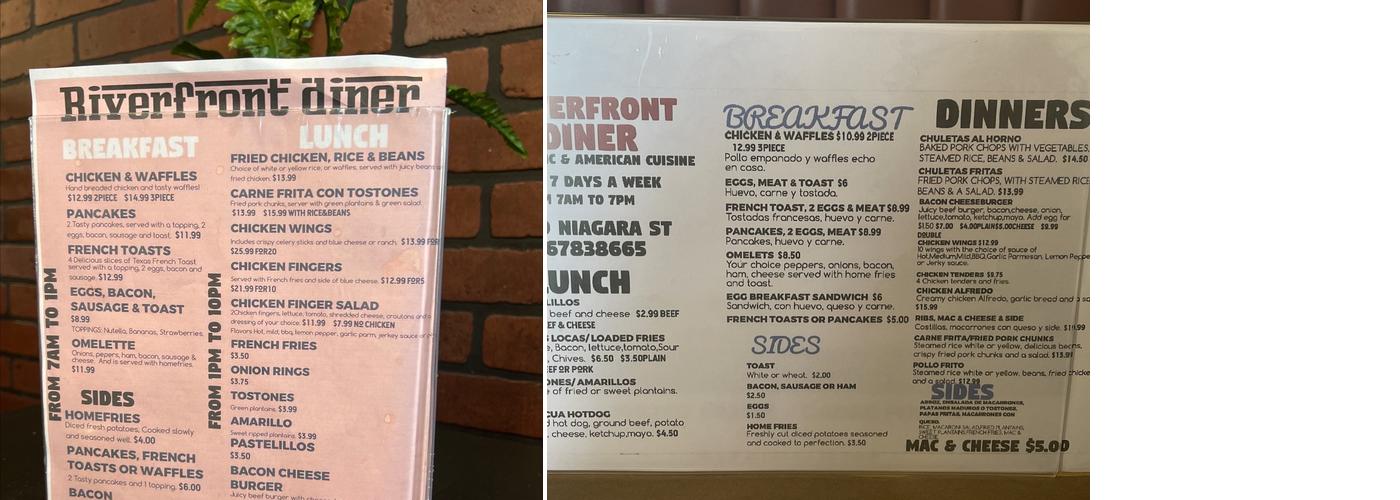 Riverfront diner
BREAKFAST
CHICKEN & WAFFLES
Hand breaded chicken and tasty waffles!
$12.99 2PIECE $14.99 3PIECE
PANCAKES
2 Tasty pancakes, served with a topping, 2
eggs, bacon, sausage and toast. $11.99
FRENCH TOASTS
4 Delicious slices of Texas French Toast
served with a topping, 2 eggs, bacon and
sausage. $12.99
EGGS, BACON,
SAUSAGE & TOAST
$8.99
TOPPINGS: Nutella, Bananas, Strawberries,
OMELETTE
Onions, pepers, ham, bacon, sausage &
cheese. And is served with homefries.
$11.99
FROM 7AM TO 1PM
SIDES
HOMEFRIES
Diced fresh potatoes, Cooked slowly
and seasoned well. $4.00
PANCAKES, FRENCH
TOASTS OR WAFFLES
2 Tasty pancakes and 1 topping. $6.00
BACON
LUNCH
FRIED CHICKEN, RICE & BEANS
Choice of white or yellow rice, or waffles, served with juicy beans
fried chicken. $13.99
CARNE FRITA CON TOSTONES
Fried pork chunks, server with green plantains & green salad.
$13.99 $15.99 WITH RICE&BEANS
CHICKEN WINGS
Includes crispy celery sticks and blue cheese or ranch. $13.99 FOR
$25.99 FOR20
CHICKEN FINGERS
Served with French fries and side of blue cheese. $12.99 FOR5
$21.99 FOR10
CHICKEN FINGER SALAD
2Chicken fingers, lettuce, tomato, shredded cheese, croutons and
dressing of your choice. $11.99 $7.99 NO CHICKEN
Flavors Hot, mild, bbq, lemon pepper, garlic parm, jerkey sauce or
FRENCH FRIES
$3.50
ONION RINGS
$3.75
TOSTONES
Green plantains. $3.99
AMARILLO
Sweet ripped plantains. $3.99
PASTELILLOS
$3.50
BACON CHEESE
BURGER
Juicy beef burger with
FROM 1PM TO 10PM
ERFRONT
DINER
C & AMERICAN CUISINE
7 DAYS A WEEK
M 7AM TO 7PM
NIAGARA ST
67838665
UNCH
LILLOS
beef and cheese $2.99 BEEF
EF & CHEESE
S LOCAS/ LOADED FRIES
e, Bacon, lettuce,tomato,Sour
, Chives. $6.50 $3.50PLAIN
EEF OR PORK
ONES/ AMARILLOS
e of fried or sweet plantains.
CUA HOTDOG
d hot dog, ground beef, potato
, cheese, ketchup,mayo. $4.50
BREAKFAST
CHICKEN & WAFFLES $10.99 2PIECE
12.99 3PIECE
Pollo empanado y waffles echo
en casa.
EGGS, MEAT & TOAST $6
Huevo, carne y tostada.
FRENCH TOAST, 2 EGGS & MEAT $8.99
Tostadas francesas, huevo y carne.
PANCAKES, 2 EGGS & MEAT $8.99
Pancakes, huevo y carne.
OMELETS $8.50
Your choice peppers, onions, bacon,
ham, cheese served with home fries
and toast.
EGG BREAKFAST SANDWICH $6
Sandwich, con huevo, queso y carne.
FRENCH TOASTS OR PANCAKES $5.00
SIDES
TOAST
White or wheat. $2.00
BACON, SAUSAGE OR HAM
$2.50
EGGS
$1.50
HOME FRIES
Freshly cut diced potatoes seasoned
and cooked to perfection. $3.50
DINNERS
CHULETAS AL HORNO
BAKED PORK CHOPS WITH VEGETABLES,
STEAMED RICE, BEANS & SALAD. $14.50
CHULETAS FRITAS
FRIED PORK CHOPS, WITH STEAMED RICE
BEANS & A SALAD. $13.99
BACON CHEESEBURGER
Juicy beef burger, bacon,cheese, onion,
lettuce,tomato, ketchup,mayo. Add egg for
$1.50 $7.00 $4.00PLAIN $5.00CHEESE $9.99
DOUBLE
CHICKEN WINGS $12.99
10 wings with the choice of sauce of
Hot,Medium,Mild,BBQ,Garlic Parmesan, Lemon Peppe
or Jerky sauce.
CHICKEN TENDERS $9.75
4 Chicken tenders and fries.
CHICKEN ALFREDO
Creamy chicken Alfredo, garlic bread and a sa
$15.99
RIBS, MAC & CHEESE & SIDE
Costillas, macarrones con queso y side. $19.99
CARNE FRITA/FRIED PORK CHUNKS
Steamed rice white or yellow, delicious beans,
crispy fried pork chunks and a salad. $13.99
POLLO FRITO
Steamed rice white or yellow, beans, fried chicken
and a salad. $12.99
SIDES
ARROZ, ENSALADA DE MACARRONES,
PLATANOS MADUROS O TOSTONES,
PAPAS FRITAS, MACARRONES CON
QUESO.
RICE, MACARONI SALAD,FRIED PLANTAINS,
SWEET PLANTAINS,FRENCH FRIES, MAC &
CHEESE
MAC & CHEESE $5.00